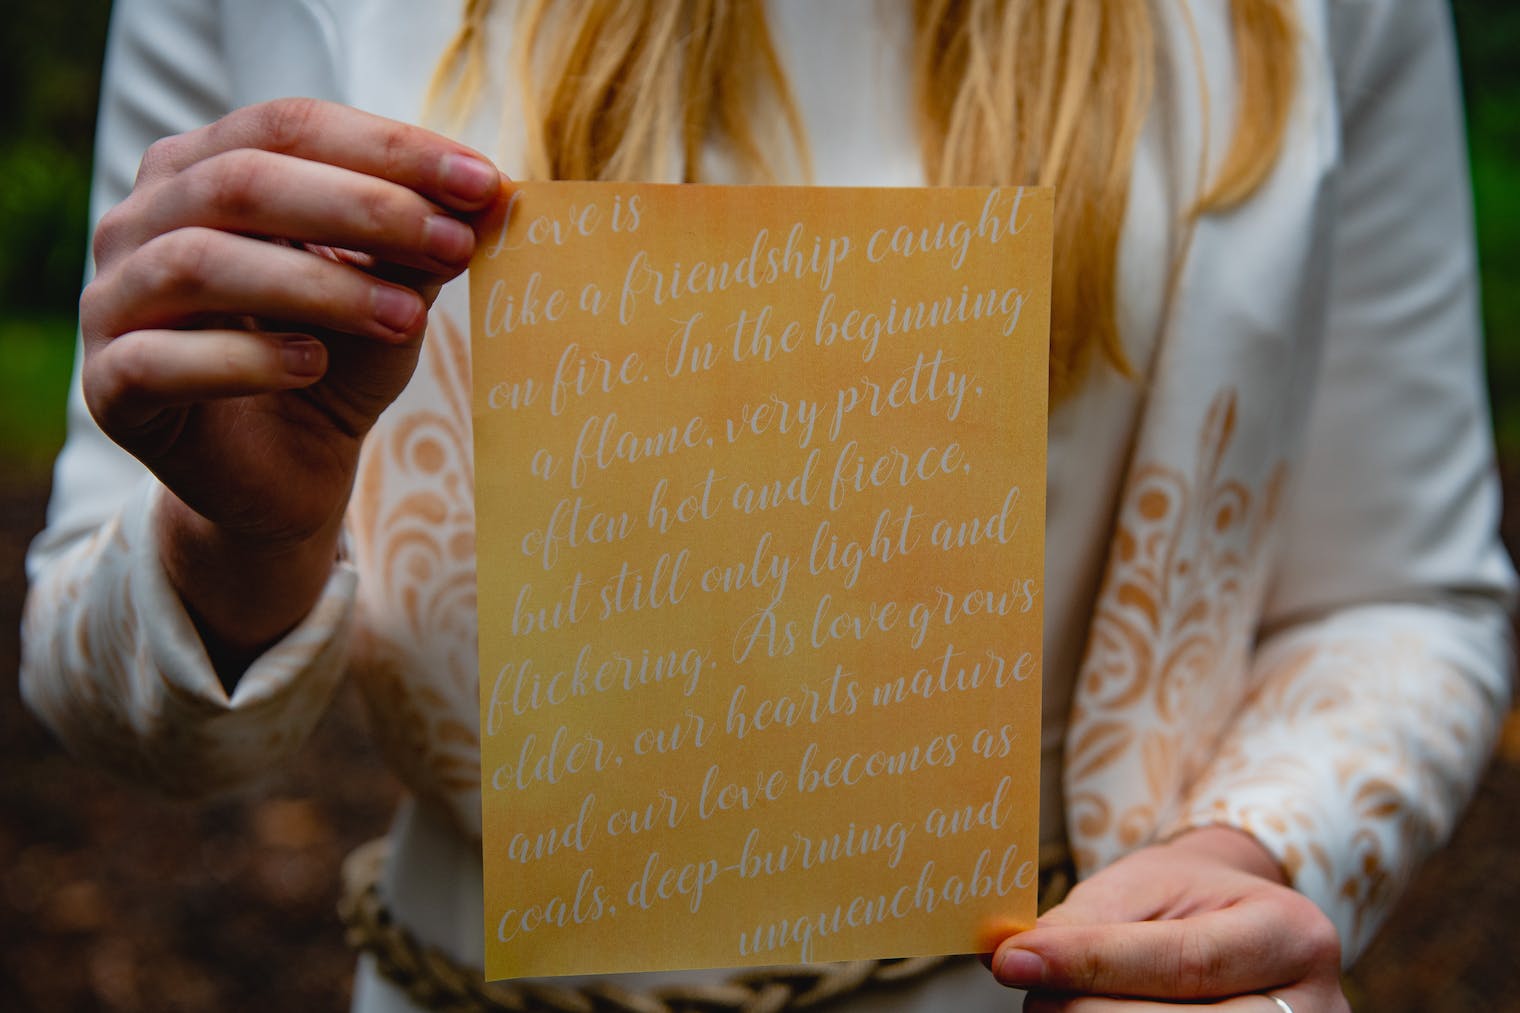 Love is
like a friendship caught
on fire. In the beginning
a flame, very pretty,
often hot and fierce,
but still only light and
flickering. As love grows
older, our hearts mature
and our love becomes as
coals, deep-burning and
unquenchable